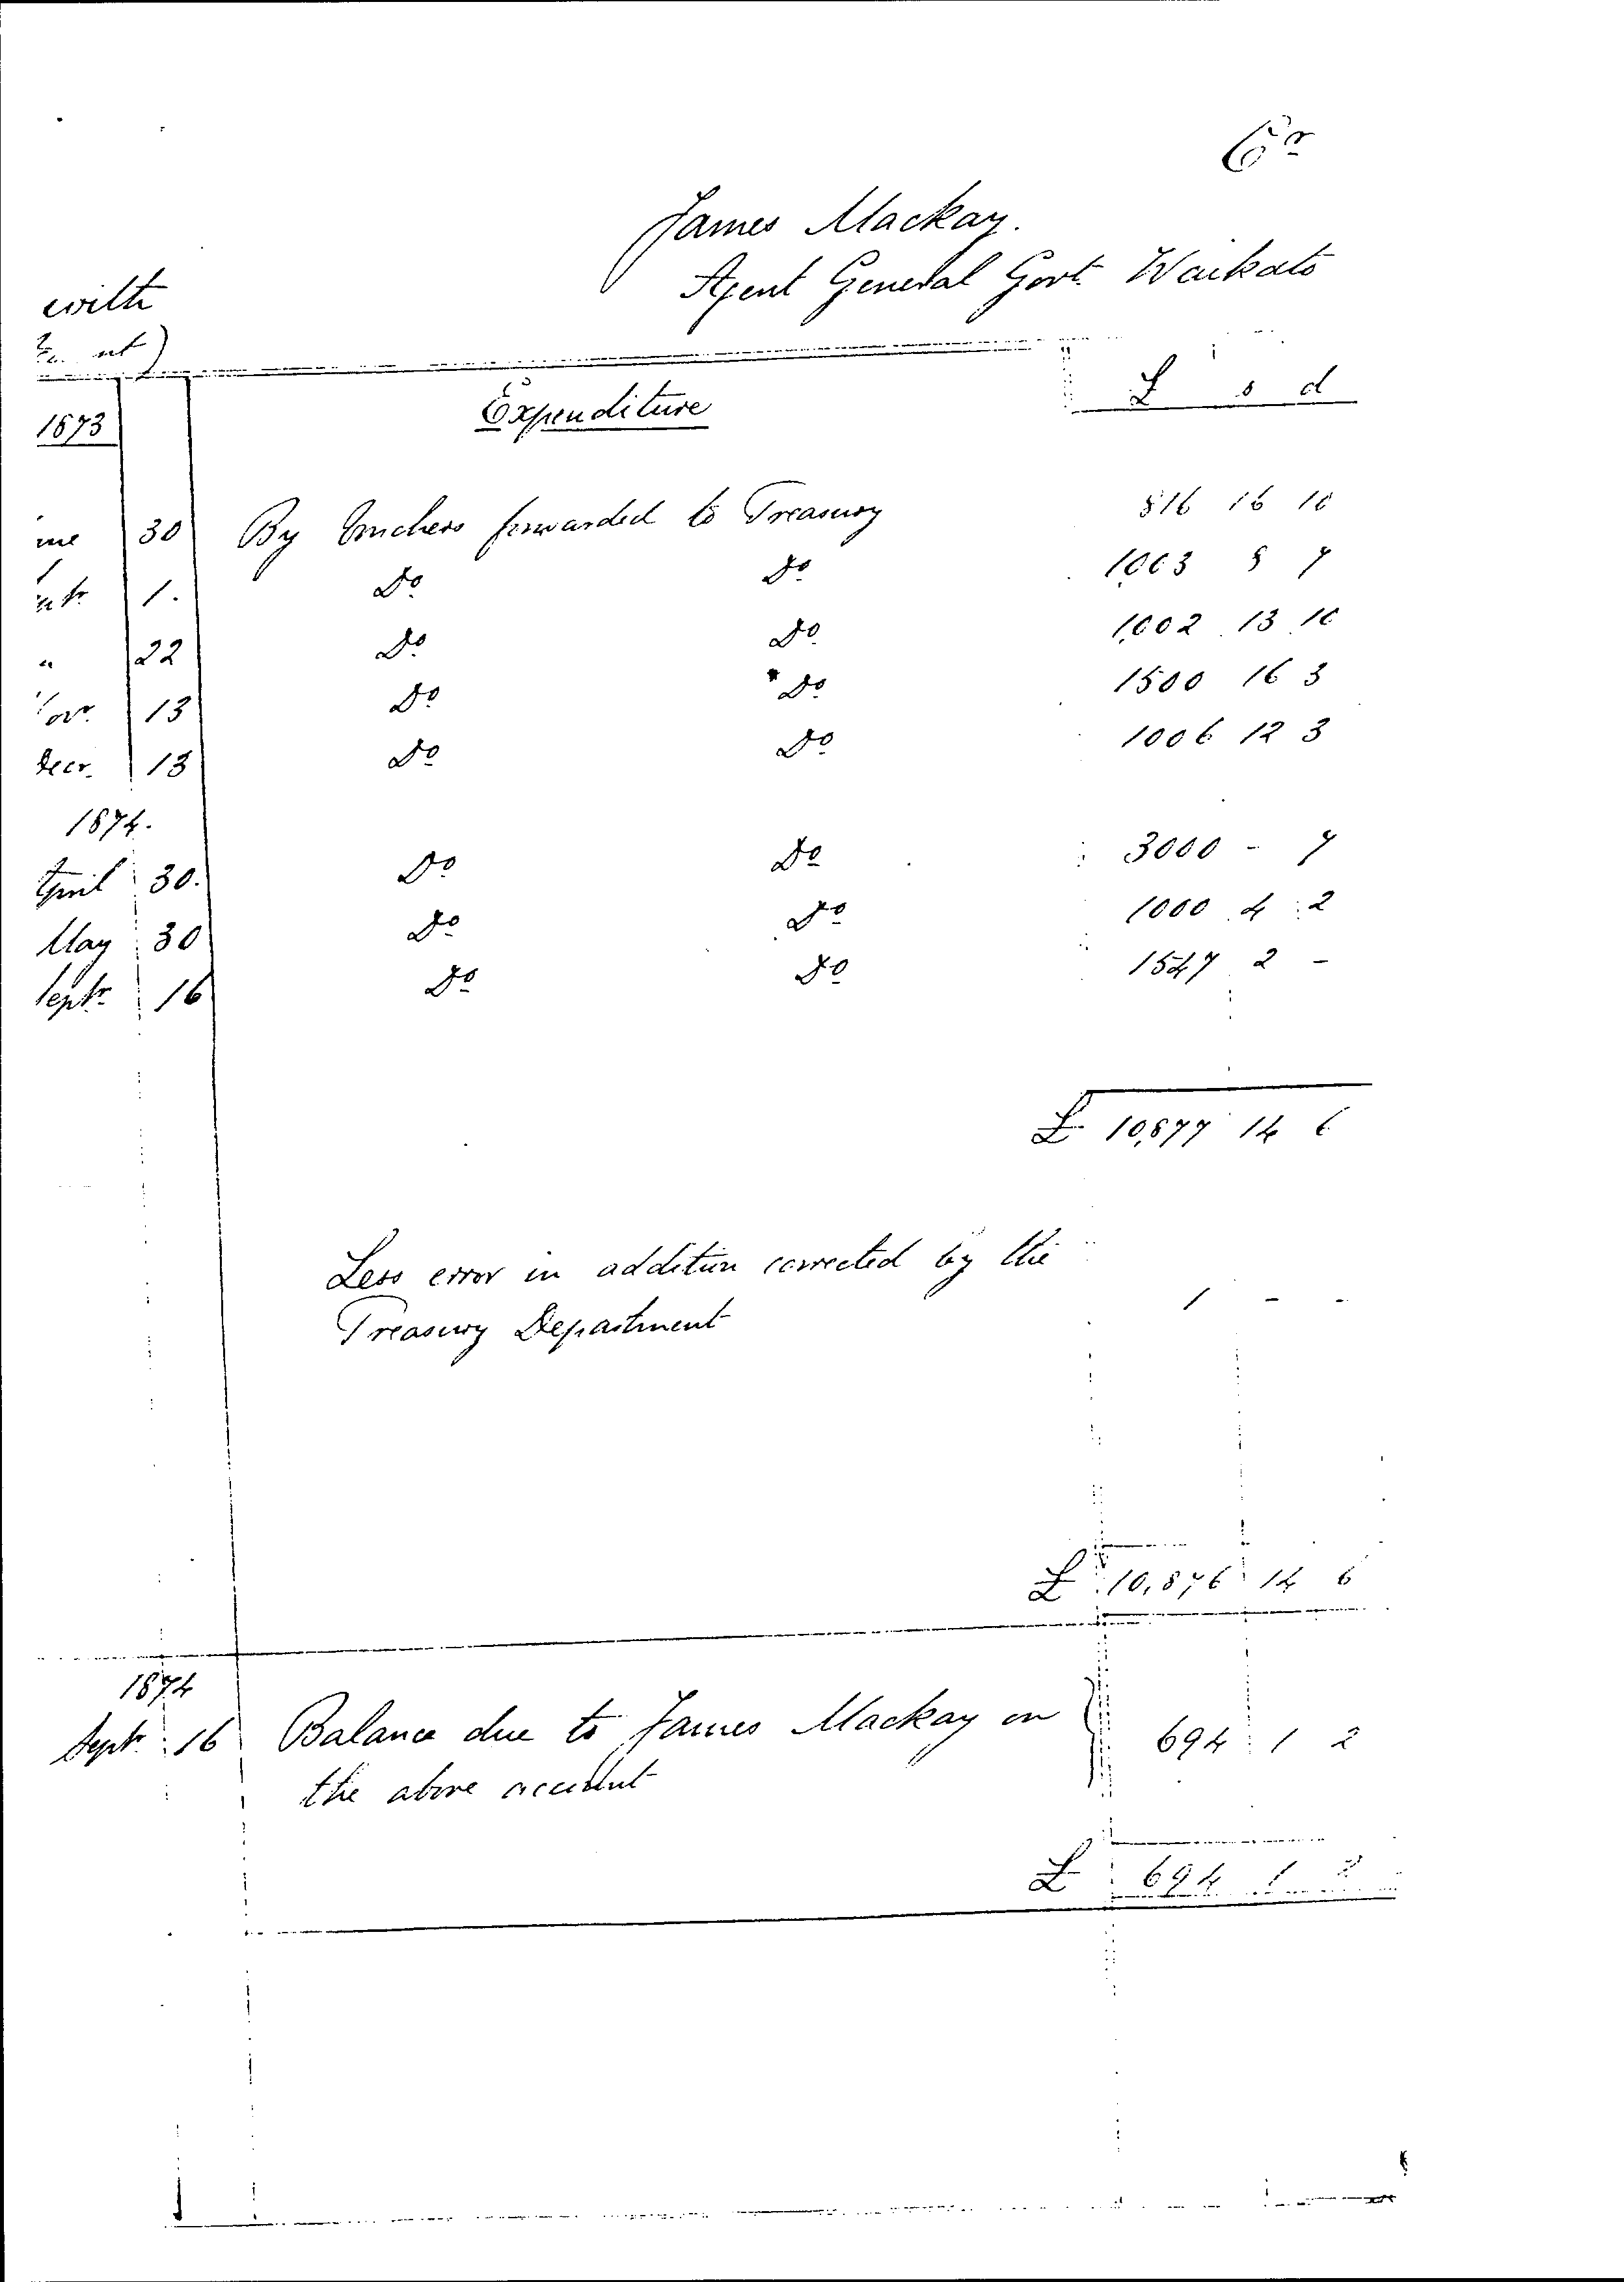 Cr
James Mackay.
Agent General Govt. Waikato
with
1873
Expenditure
£ s d
me 30 By Vouchers forwarded to Treasury 816 16 10
1. Do Do 1,003 8 7
" 22 Do Do 1,002 13 10
ovr. 13 Do Do 1500 16 3
Decr. 13 Do Do 1006 12 3
1874.
April 30. Do Do 3000 - 7
May 30 Do Do 1000 4 2
Septr. 16 Do Do 1547 2 -
£ 10,877 14 6
Less error in addition corrected by the
Treasury Department 1 - -
£ 10,876 14 6
1874
Septr. 16 Balance due to James Mackay on 694 1 2
the above account
£ 694 1 2